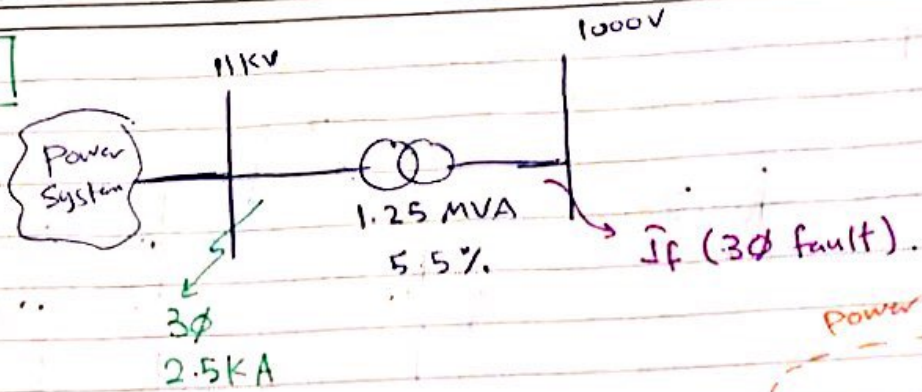 1000V
11KV
Power
System
1.25 MVA
5.5%
If (3Ø fault).
3Ø
2.5KA
Power